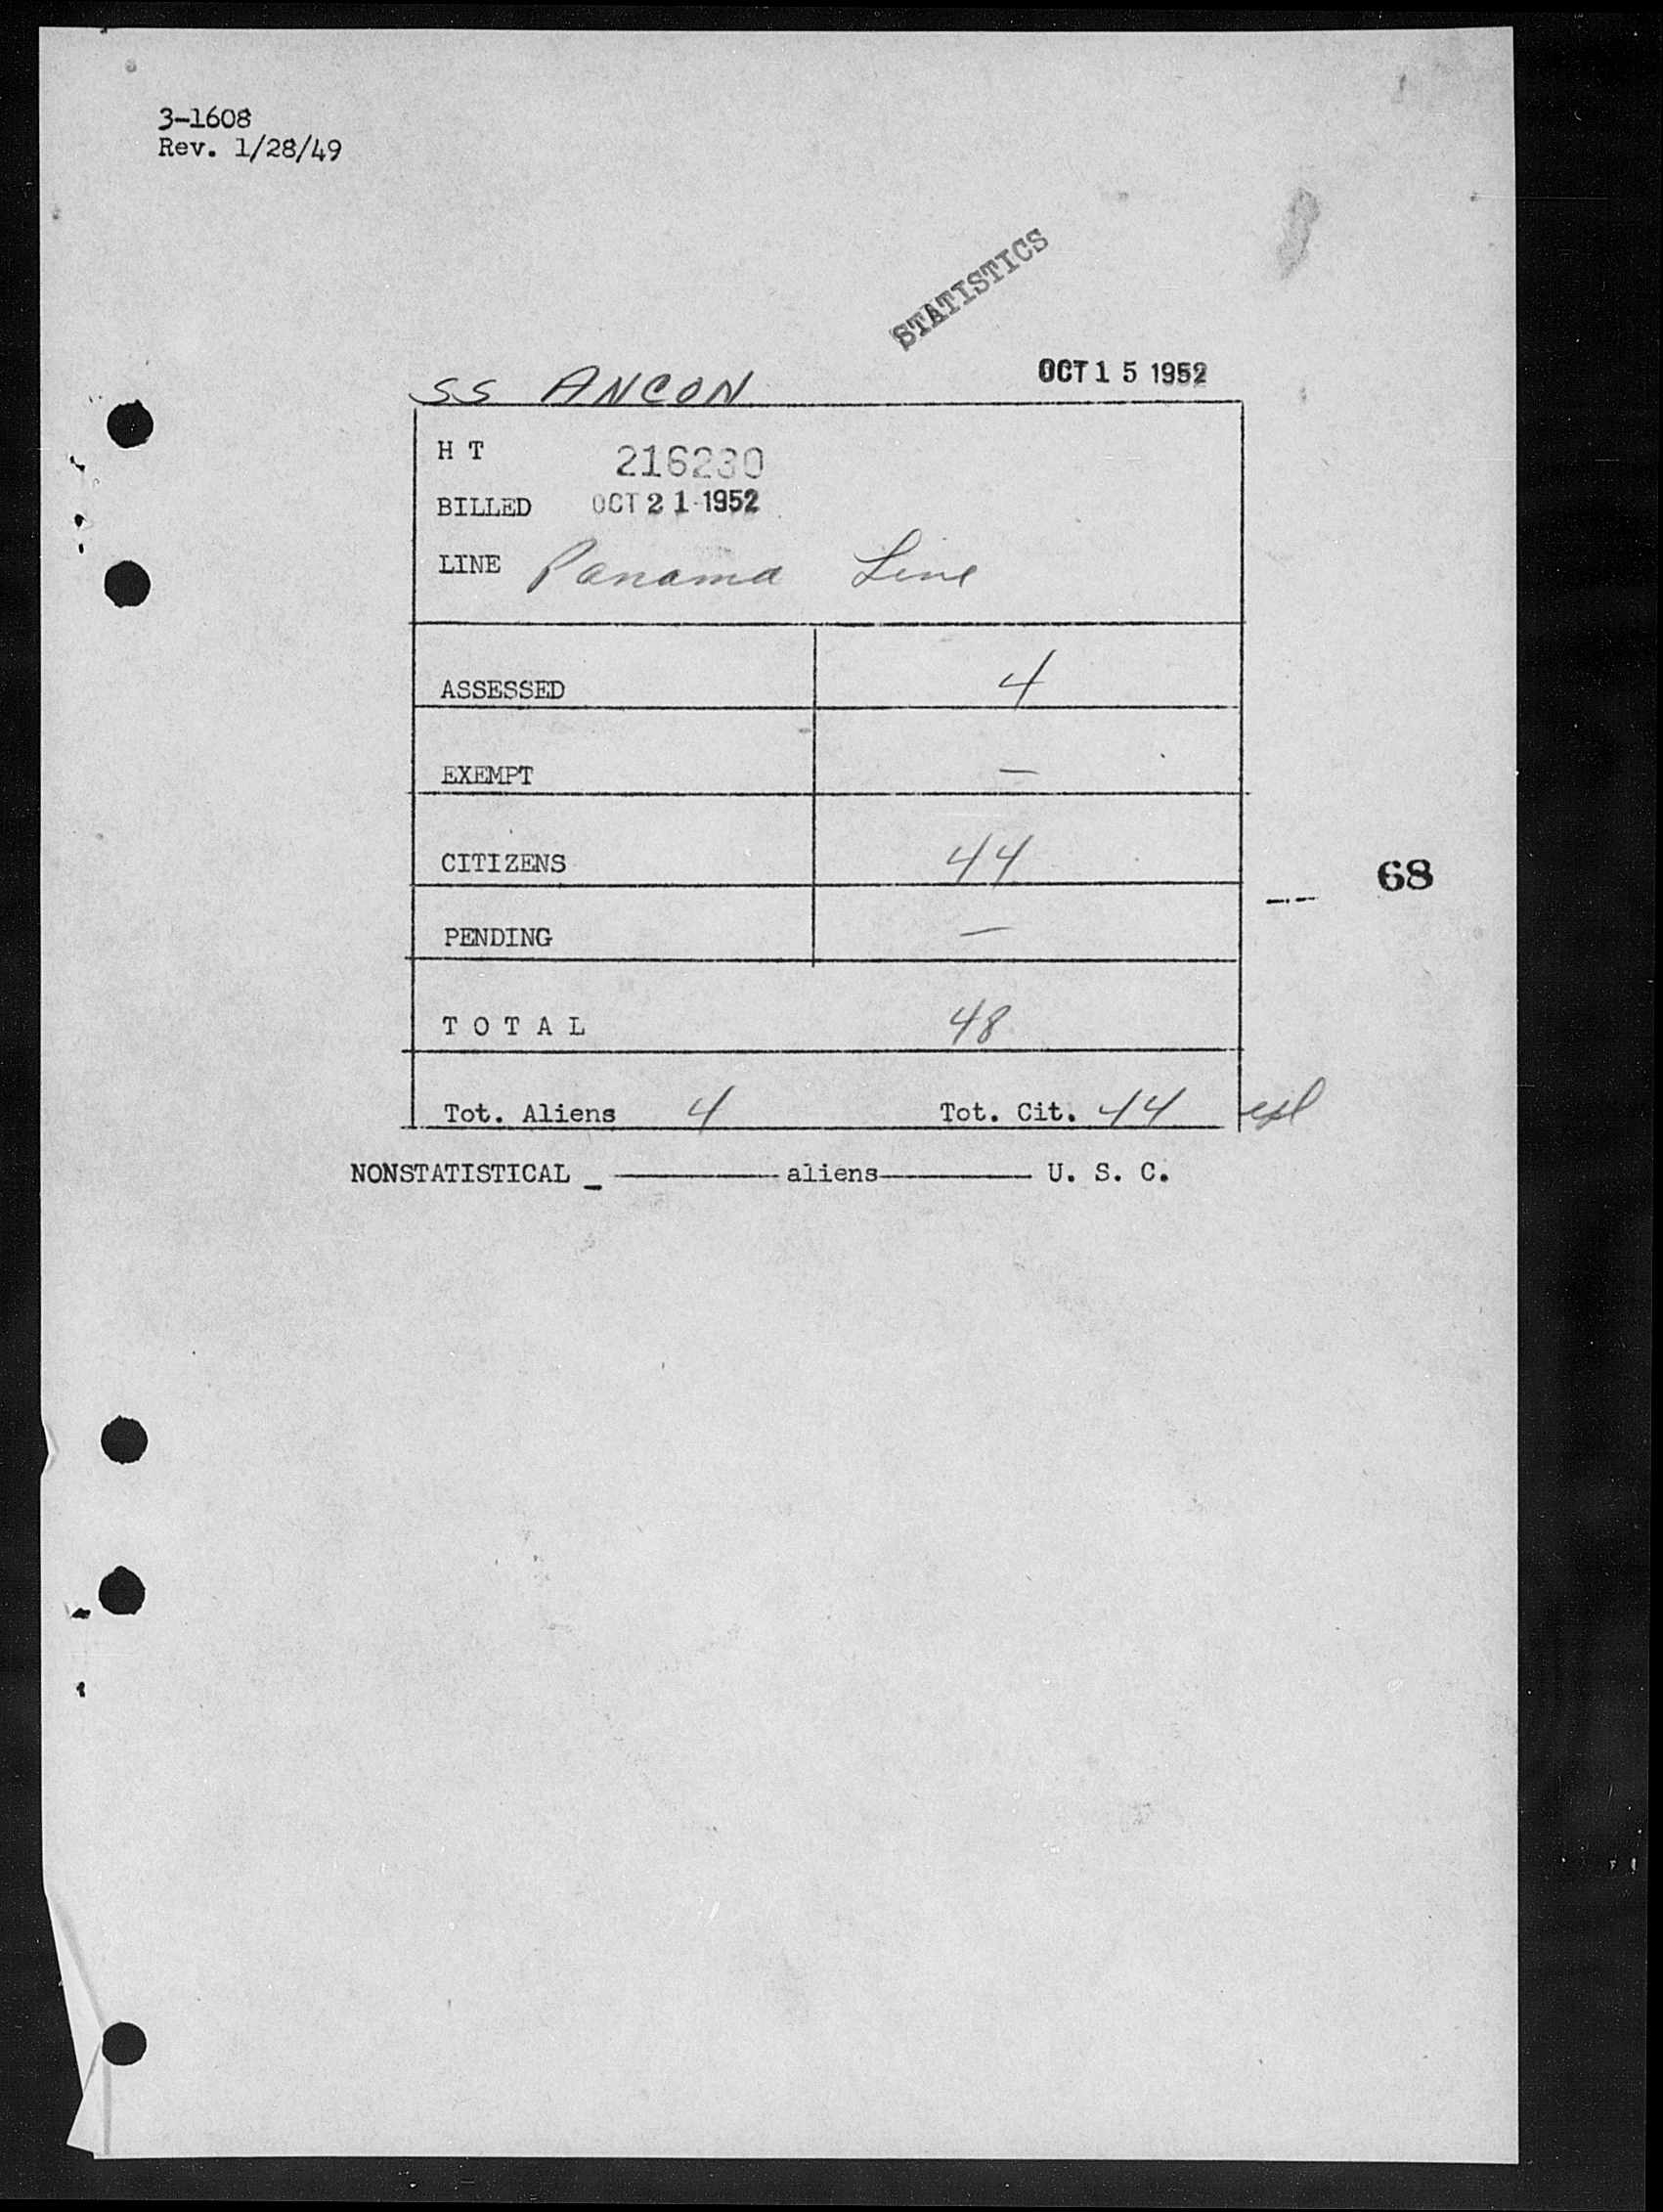 3-1608
Rev. 1/28/49
STATISTICS
OCT 15 1952
SS ANCON
H T 216230
BILLED OCT 21 1952
LINE Panama Line
ASSESSED 4
EXEMPT —
CITIZENS 44
68
PENDING —
T O T A L 48
Tot. Aliens 4 Tot. Cit. 44
NONSTATISTICAL _ ——— aliens ——— U. S. C.